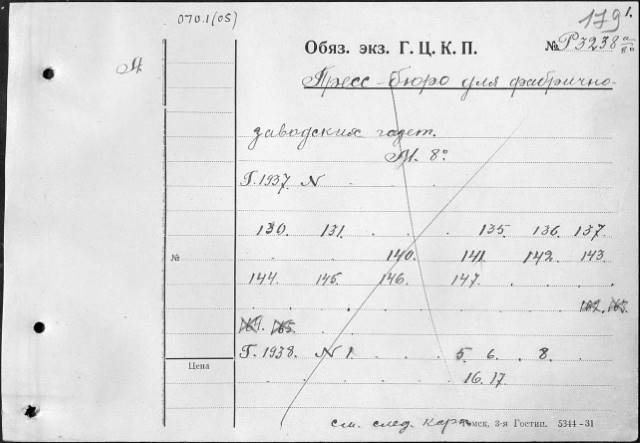 070.1(05)
179 1.
Обяз. экз. Г. Ц. К. П. № Р3238 а/п
М
Пресс-бюро для фабрично-
заводских газет.
М. 8°
Г. 1937. N . . . . . .
130. 131. . . . 135. 136. 137.
№ . . . 140. 141. 142. 143.
144. 145. 146. 147. . . .
165.
165.
Г. 1938. N 1. . . . 5. 6. . 8. .
Цена
. . . . . 16. 17.
см. след. карт.
Томск, 3-я Гостип. 5344-31